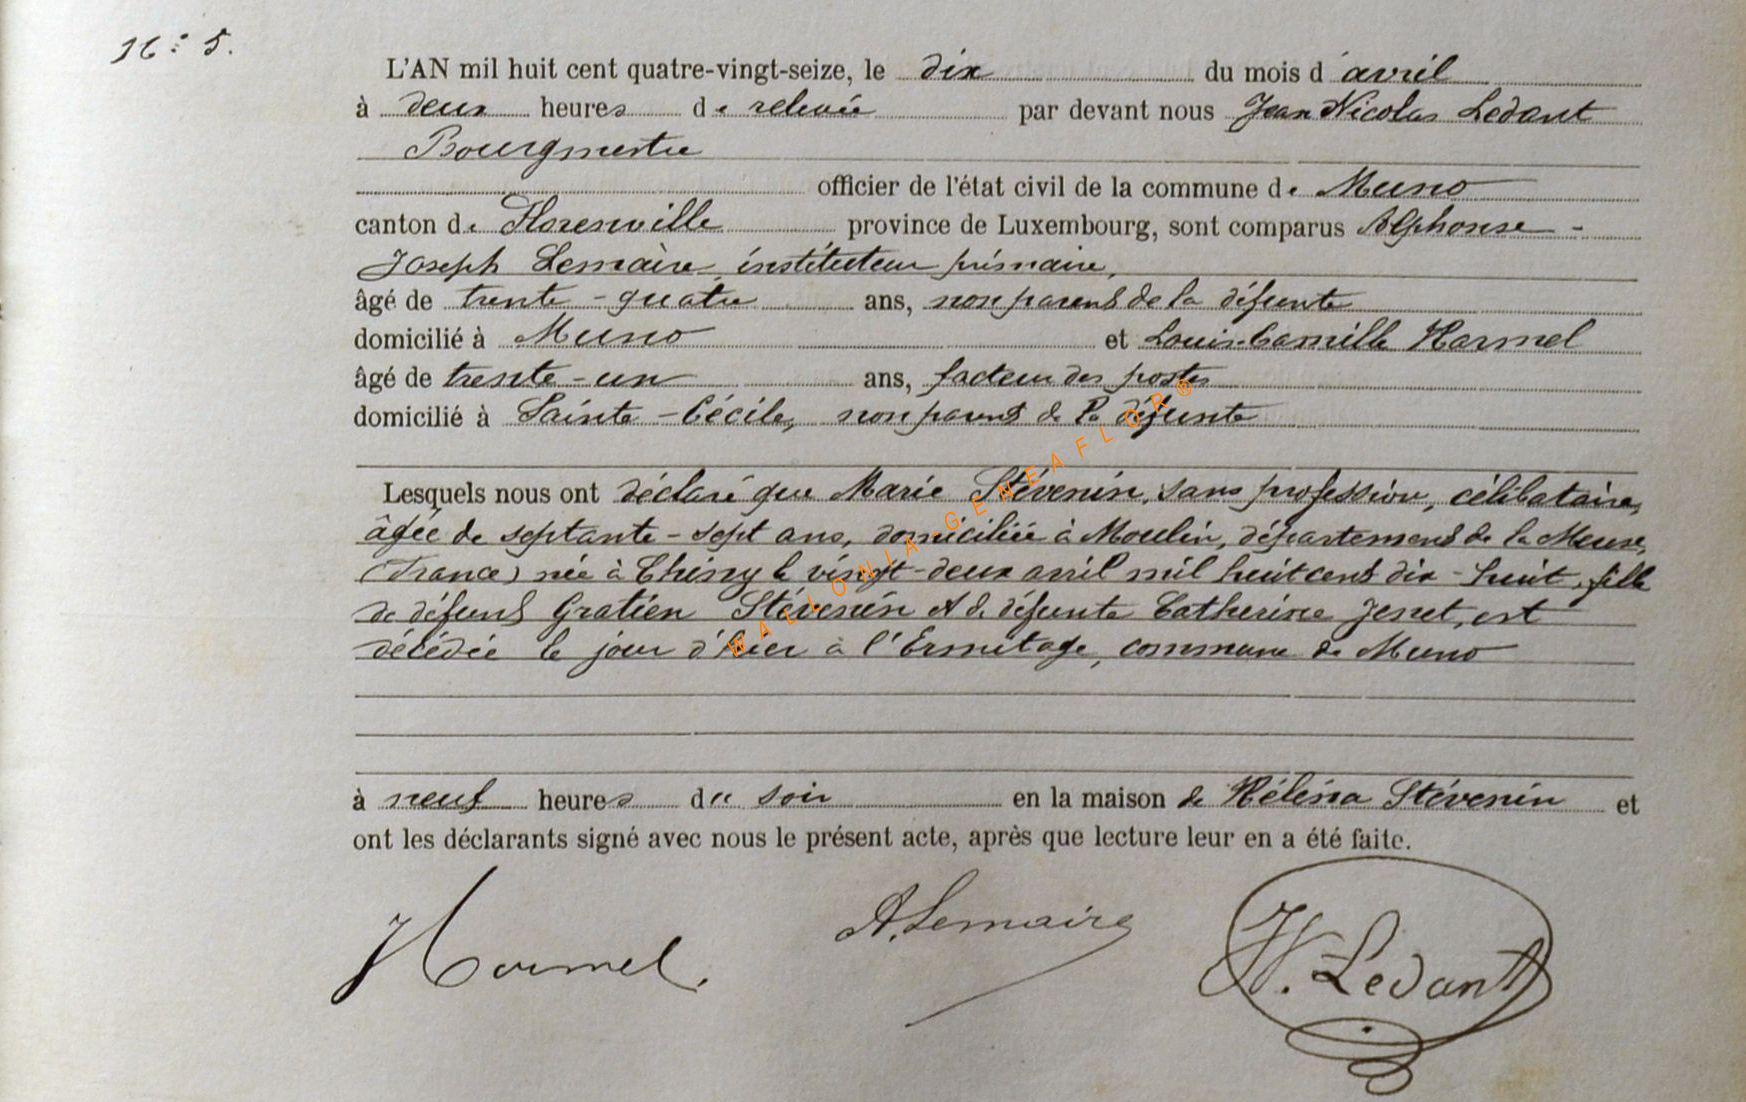 N° 5.
L'AN mil huit cent quatre-vingt-seize, le dix du mois d'avril
à deux heures de relevée par devant nous Jean Nicolas Ledant
Bourgmestre
officier de l'état civil de la commune de Muno
canton de Florenville province de Luxembourg, sont comparus Alphonse -
Joseph Lemaire, instituteur primaire,
âgé de trente-quatre ans, non parent de la défunte
domicilié à Muno et Louis-Camille Harmel
âgé de trente-un ans, facteur des postes
domicilié à Sainte-Cécile, non parent de la défunte
Lesquels nous ont déclaré que Marie Stévenin, sans profession, célibataire,
âgée de septante-sept ans, domiciliée à Moulin, département de la Meuse,
(France) née à Chiny le vingt-deux avril mil huit cent dix-huit, fille
de défunt Gratien Stévenin et de défunte Catherine Jenet, est
décédée le jour d'hier à l'Ermitage, commune de Muno
à neuf heures du soir en la maison de Héléna Stévenin et
ont les déclarants signé avec nous le présent acte, après que lecture leur en a été faite.
Harmel. A. Lemaire N. Ledant
WALLONIA-GENEAFLOR®